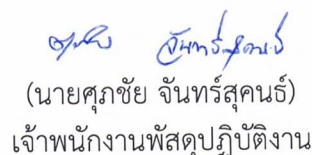 ศุภชัย จันทร์สุคนธ์
(นายศุภชัย จันทร์สุคนธ์)
เจ้าพนักงานพัสดุปฏิบัติงาน